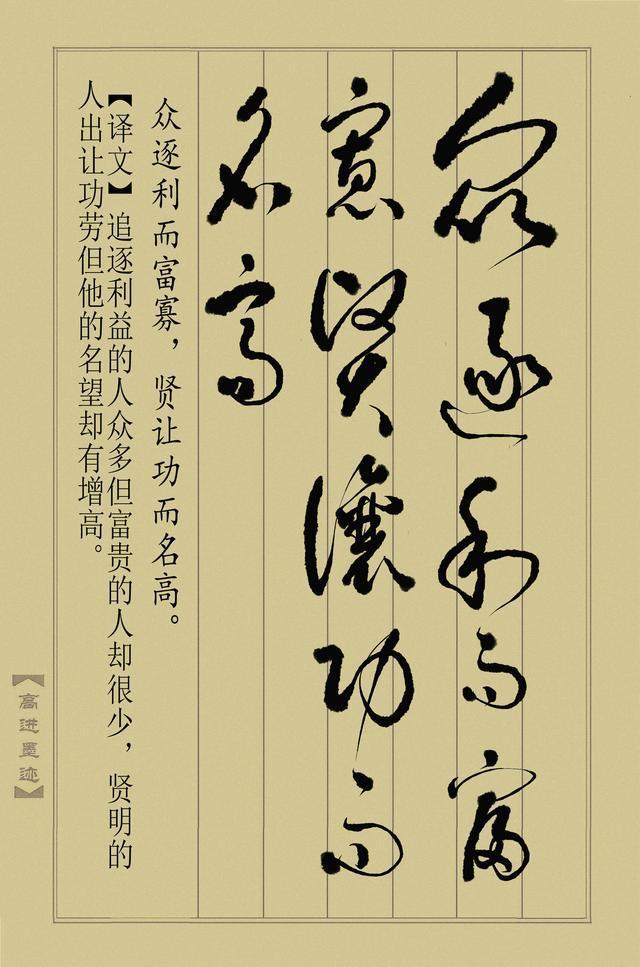 众逐利而富
寡贤让功而
名高
众逐利而富寡，贤让功而名高。
【译文】追逐利益的人众多但富贵的人却很少，贤明的
人出让功劳但他的名望却有增高。
【高进墨迹】